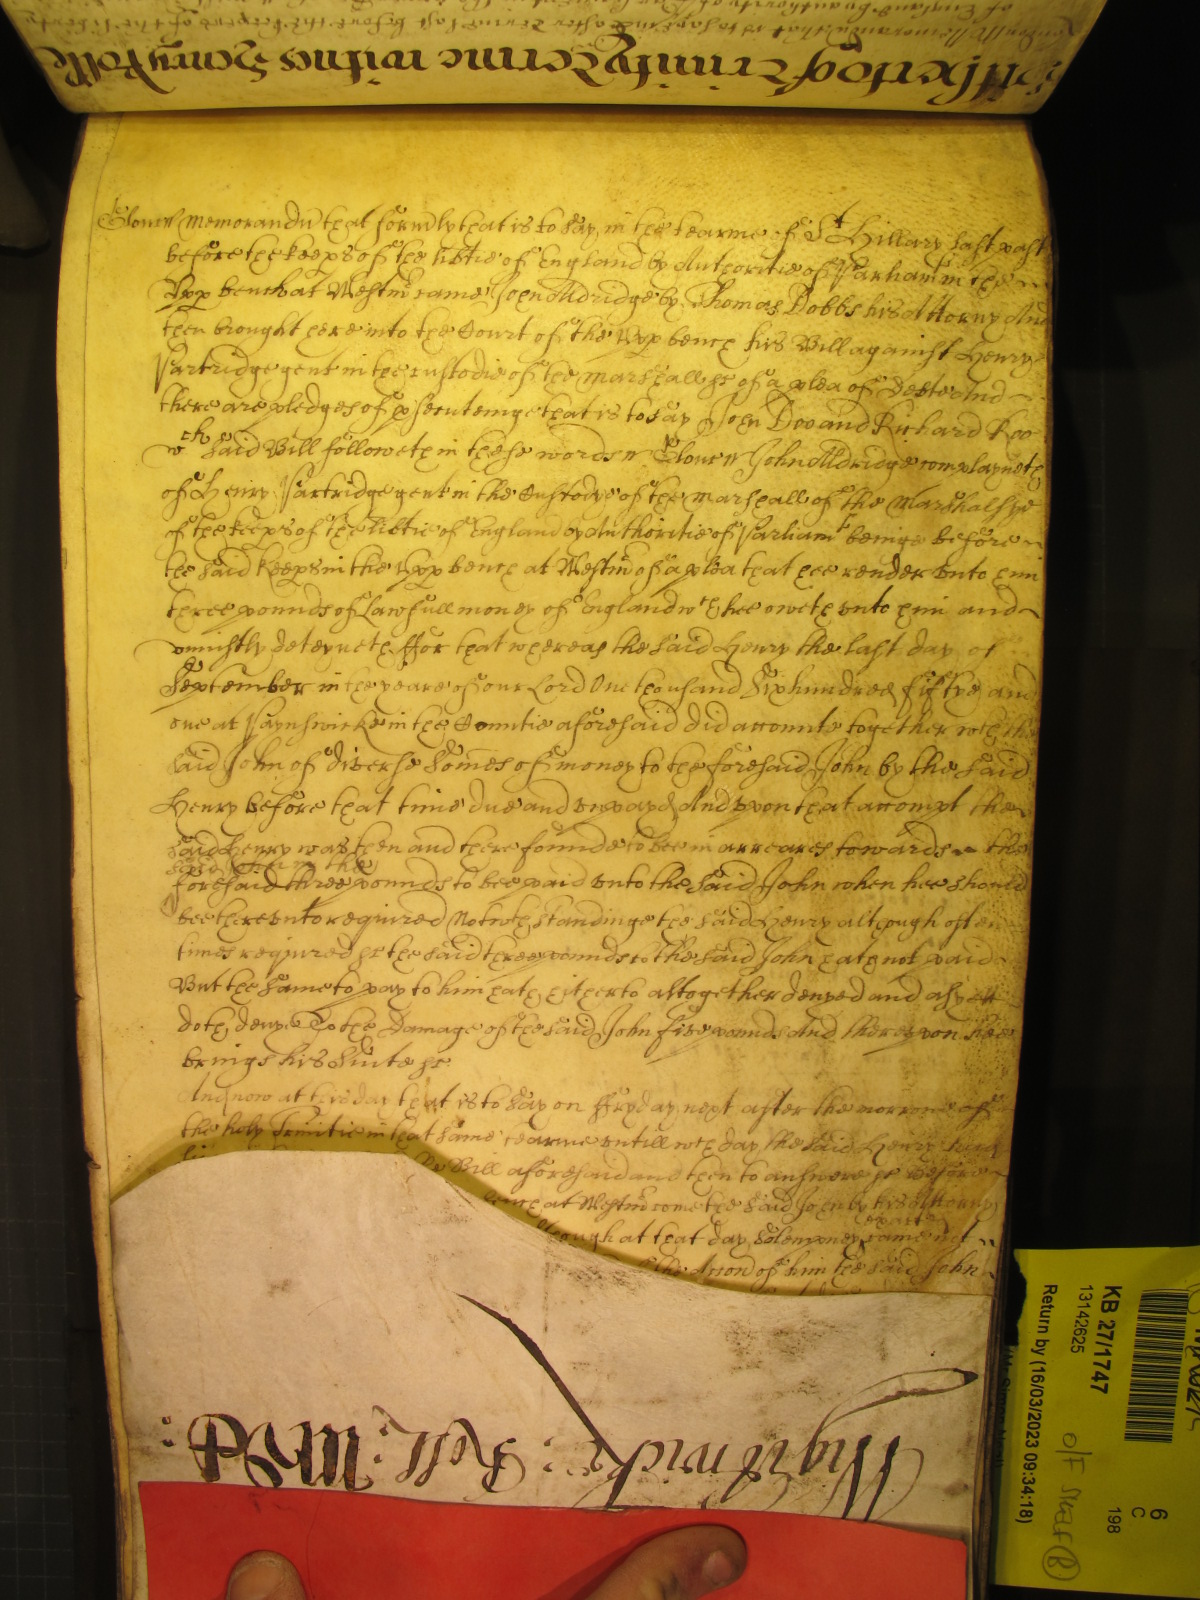 Glouc Memorandu that formly that is to say in the tearme of St Hillary last past
before the keeps of the libtie of England by Authoritie of Parliam in the
Upp bench at Westm came John Aldridge by Thomas Dobbs his Attorny And
then brought here into the Court of the Upp bench his Bill against Henry
Partridge gent in the custodie of the Marshall &c of a plea of Debt And
there are pledges of psecutinge that is to say John Doo and Richard Roo
wch said Bill followeth in these words Glouc John Aldridge complayneth
of Henry Partridge gent in the Custodye of the Marshall of the Marshalsye
of the keeps of the libtie of England by Authoritie of Parliamt beinge before
the said keeps in the Upp bench at Westm of a plea that hee render unto him
three pounds of Lawfull money of England wch hee oweth unto him and
uniustly deteyneth ffor that whereas the said Henry the last day of
September in the yeare of our Lord One thousand Six hundred fiftye and
one at Paynswicke in the Countie aforesaid did accompte together with the
said John of diverse Somes of money to the foresaid John by the said
Henry before that time due and unpayd And upon that accompt the
said Henry was then and there founde to bee in arreares towards the
said John in the
foresaid three pounds to bee paid unto the said John when hee should
bee thereunto required Notwthstandinge the said Henry although often
times required &c the said three pounds to the said John hath not paid
But the same to pay to him hath hitherto altogether denyed and as yett
doth denye To the Damage of the said John five pounds And thereupon hee
brings his Suite &c
And now at this day that is to say on ffryday next after the morrowe of
the holy Trinitie in that same tearme untill wch day the said Henry had
Bill aforesaid and then to answere &c before
bench at Westm come the said John by his Attorny
exacted
though at that day solempney came not
the Accon of him the said John
Wightwicke : Roll :
KB 27/1747
13142625
Return by (16/03/2023 09:34:18)
O/F Shelf (B)
6
C
198